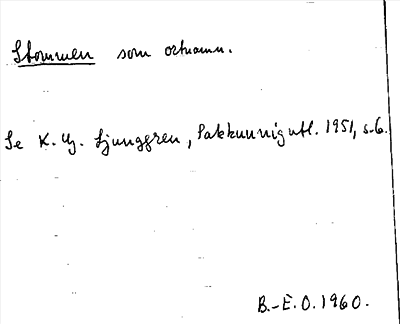 Stommen som ortnamn.
Se K. G. Ljunggren, Sakkunnigutl. 1951, s. 6.
B.-E. O. 1960.